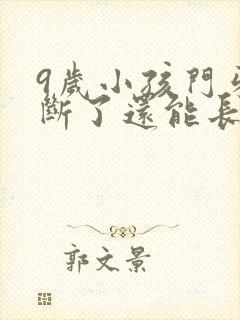 9歲小孩門牙
斷了還能長
郭文景